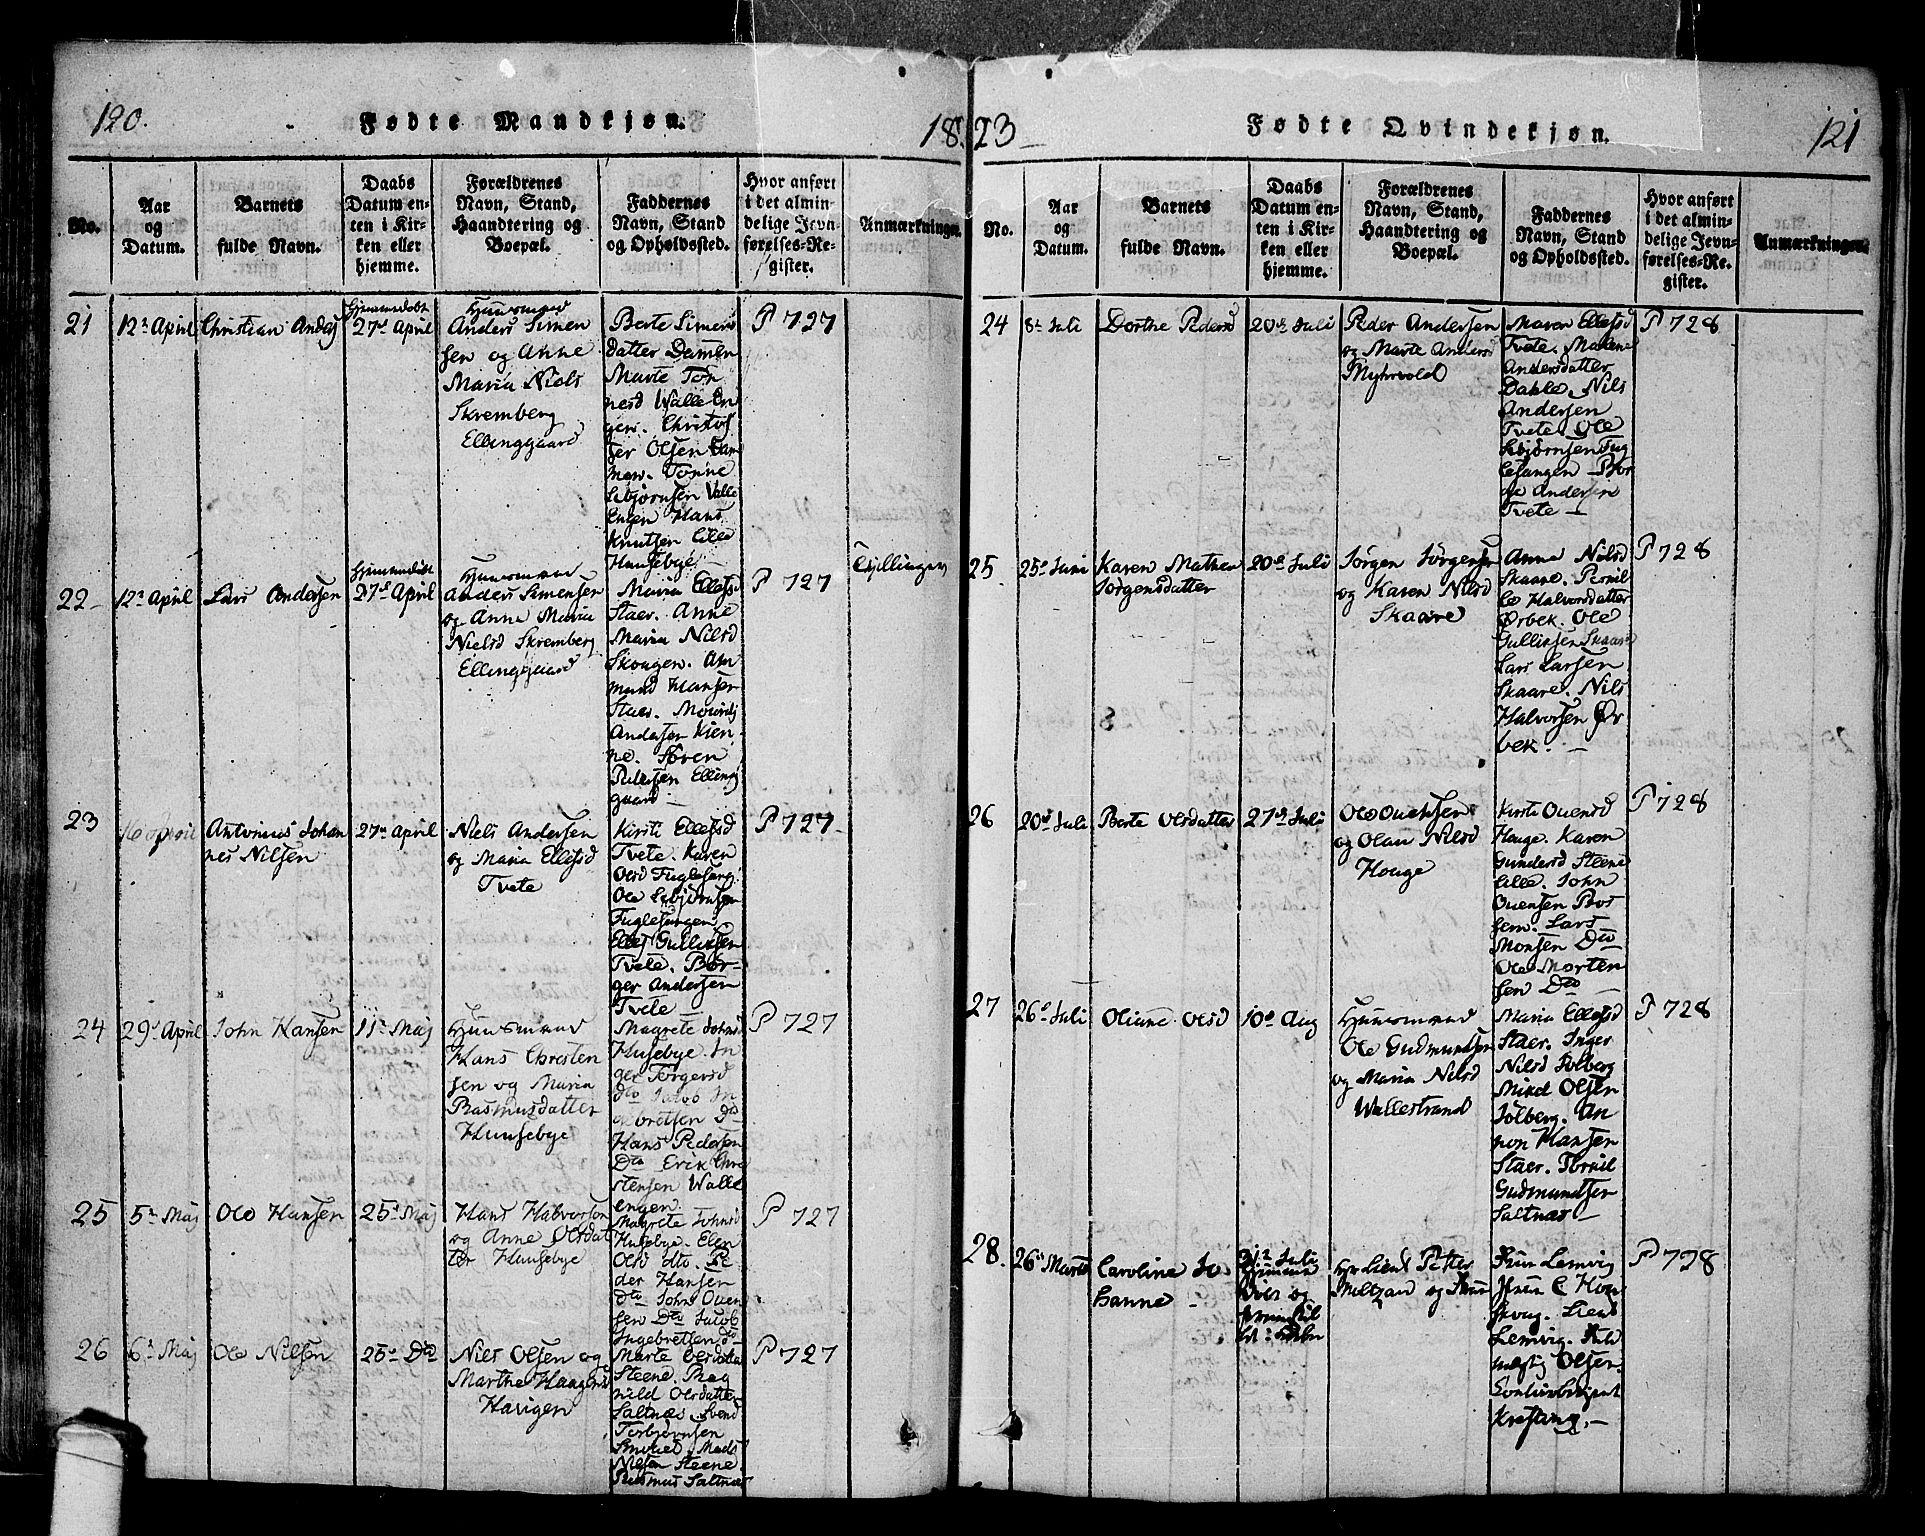 120.
Fødte Mandkjøn.
18
No.
Aar
og
Datum.
Barnets
fulde Navn.
Daabs
Datum en-
ten i Kir-
ken eller
hjemme.
Forældrenes
Navn, Stand,
Haandtering og
Boepæl.
Faddernes
Navn, Stand
og Opholdssted.
Hvor anført
i det almin-
delige Jevn-
førelses-Re-
gister.
Anmærkninger.
21
12 April
Christian Anders
Hjemmedøbt
27 April
Huusmand
Anders Simen
sen og Anne
Maria Niels
Skremberg
Ellinggaard
Berte Simens
datter Damen
Marte Tor
nesd Walle En
gen. Christof
fer Olsen Dam
men. Tønne
Esbjørnsen Valle
Engen Hans
Knutsen Lille
Huusebye.
P 727
22
12 April
Lars Andersen
Hjemmedøbt
27 April
Huusmand
Anders Simensen
og Anne Maria
Nielsd Skremberg
Ellinggaard
Maria Ellefsd
Staer. Anne
Maria Nilsd
Skougen. Am
mund Hansen
Staer.
Andersen Kien
ne. Søren
Pedersen Elling
gaard
P 727
Tvillinger
23
16 April
Antonius Johan
nes Nilsen
27 April
Niels Andersen
og Maria Ellefsd
Tvete
Kirsti Ellefsd
Tvete. Karen
Olsd Fuglesang.
Ole Esbjørnsen
Fuglesangen
Ellef Gullichsen
Tvete. Bør-
ger Andersen
Tvete
P 727
24
29 April
John Hansen
11 Maj
Huusmand
Hans Christen
sen og Maria
Rasmusdatter
Huusebye
Magrete Johnsd
Husebye. In
ger Torgersd
dto Jacob In
gebretsen Do
Hans Pedersen
Dto Erik Chri
stensen Walle
engen.
P 727
25
5 Maj
Ole Hansen
25 Maj
Hans Halvorsen
og Anne Olsdat
ter Huusebye
Magrete Johnsd
Husebye. Elen
Olsd dto. Pe
der Hansen
dto John Ouen
sen Dto Jacob
Ingebretsen do
P 727
26
6 Maj
Ole Nilsen
25 Dto
Niels Olsen og
Marthe Haagens
Havigen
Marte Olsdatter
Steene. Rag
nild Olsdatter
Saltnæs. Svend
Torbjørnsen
Mads
Nilsen Steene
Rasmus Saltnæs
P 727
23
Fødte Qvindekjøn.
121
No.
Aar
og
Datum.
Barnets
fulde Navn.
Daabs
Datum en-
ten i Kir-
ken eller
hjemme.
Forældrenes
Navn, Stand,
Haandtering og
Boepæl.
Faddernes
Navn, Stand
og Opholdssted.
Hvor anført
i det almin-
delige Jevn-
førelses-Re-
gister.
Anmærkninger.
24
8 Juli
Dorthe Pedersd
20 Juli
Peder Andersen
og Marte Andersd
Myhrvold
Maren Ellefsd
Tvete. Malene
Andersdatter
Dahle. Nils
Andersen
Tvete. Ole
Esbjørnsen Fug
lesangen Bør
ge Andersen
Tvete
P 728
25
25 Juni
Karen Mathea
Jørgensdatter
20 Juli
Jørgen Jørgensen
og Karen Nilsd
Skaare
Anne Nilsd
Skaare. Pernil
le Halvorsdatter
Ørbek. Ole
Gullichsen Skaare
Lars Larsen
Skaare. Nils
Halvorsen Ør
bek.
P 728
26
20 Juli
Berte Olsdatter
27 Juli
Ole Ouensen
og Olau Nilsd
Houge
Kirste Ouensd
Houge. Karen
Gundersd Steene
Lille. John
Ouensen Bos
sem. Lars
Monsen Dto
Ole Morten
sen Dto
P 728
27
26 Juli
Oliane Olsd
10 Aug
Huusmand
Ole Gudmundsen
og Maria Nilsd
Wallestrand
Maria Ellefsd
Staer. Inger
Nilsd Solberg
Mikel Olsen
Solberg. An
non Hansen
Staer. Torkil
Gudmundsen
Saltnæs
P 728
28.
26 Marts
Caroline Jo
hanne
31 Juli
hjemme
Hr Lieut Petter
Meltzan og Frue
Frue Lemvig
Frue C Hou
skoug. Lieut
Lemvig. Fuld
mægtig Olsen.
Contoirbetjent
Krefting.
P 728